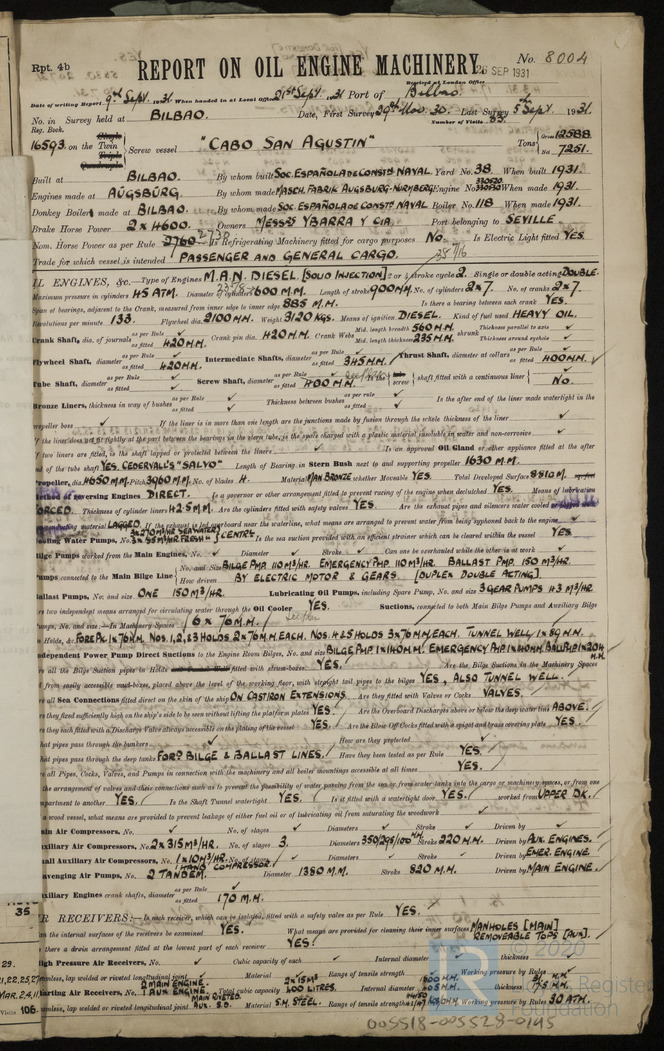 Rpt. 4b
REPORT ON OIL ENGINE MACHINERY.
No. 8004
26 SEP 1931
Received at London Office
Date of writing Report 9th Sept. 1931 When handed in at Local Office 21st Sept. 1931 Port of Bilbao
No. in Survey held at BILBAO. Date, First Survey 29th Nov. 30. Last Survey 5th Sept 1931.
Reg. Book. Number of Visits 85.
16593 on the Twin Screw vessel "CABO SAN AGUSTIN" Tons Gross 12588 Net 7251.
Built at BILBAO. By whom built SOC. ESPAÑOLA DE CONSTN. NAVAL. Yard No. 38. When built 1931.
Engines made at AUGSBURG. By whom made MASCH. FABRIK AUGSBURG-NURNBERG Engine No. When made 1931.
Donkey Boiler made at BILBAO. By whom made SOC. ESPAÑOLA DE CONSTN. NAVAL Boiler No. 118 When made 1931.
Brake Horse Power 2 x 4600. Owners MESSRS YBARRA Y CIA. Port belonging to SEVILLE.
Nom. Horse Power as per Rule 2760 Is Refrigerating Machinery fitted for cargo purposes No. Is Electric Light fitted YES.
Trade for which vessel is intended PASSENGER AND GENERAL CARGO.
IL ENGINES, &c. Type of Engines M.A.N. DIESEL. [SOLID INJECTION] 2 or 4 stroke cycle 2. Single or double acting DOUBLE.
Maximum pressure in cylinders 45 ATM. Diameter of cylinders 600 M.M. Length of stroke 900 M.M. No. of cylinders 2 x 7. No. of cranks 2 x 7.
Span of bearings, adjacent to the Crank, measured from inner edge to inner edge 885 M.M. Is there a bearing between each crank YES.
Revolutions per minute 133. Flywheel dia. 2100 M.M. Weight 3120 KGS. Means of ignition DIESEL. Kind of fuel used HEAVY OIL.
Crank Shaft, dia. of journals as per Rule as fitted 420 M.M. Crank pin dia. 420 M.M. Crank Webs Mid. length breadth 560 M.M. Mid. length thickness 235 M.M. shrunk Thickness parallel to axis Thickness around eyehole
Flywheel Shaft, diameter as per Rule as fitted 420 M.M. Intermediate Shafts, diameter as per Rule as fitted 345 M.M. Thrust Shaft, diameter at collars as per Rule as fitted 400 M.M.
Tube Shaft, diameter as per Rule as fitted Screw Shaft, diameter as per Rule as fitted 400 M.M. Is the screw shaft fitted with a continuous liner No.
Bronze Liners, thickness in way of bushes as per Rule as fitted Thickness between bushes as per Rule as fitted Is the after end of the liner made watertight in the
propeller boss If the liner is in more than one length are the junctions made by fusion through the whole thickness of the liner
If the liner does not fit tightly at the part between the bearings in the stern tube, is the space charged with a plastic material insoluble in water and non-corrosive
If two liners are fitted, is the shaft lapped or protected between the liners Is an approved Oil Gland or other appliance fitted at the after
end of the tube shaft YES. CEDERVALL'S "SALVO" Length of Bearing in Stern Bush next to and supporting propeller 1630 M.M.
Propeller, dia. 4650 M.M. Pitch 3960 M.M. No. of blades 4. Material MAN BRONZE whether Moveable YES. Total Developed Surface
Method of reversing Engines DIRECT. Is a governor or other arrangement fitted to prevent racing of the engine when declutched YES. Means of lubrication
FORCED. Thickness of cylinder liners 42.5 M.M. Are the cylinders fitted with safety valves YES. Are the exhaust pipes and silencers water cooled or lagged with
non-conducting material LAGGED. If the exhaust is led overboard near the waterline, what means are arranged to prevent water from being syphoned back to the engine
Cooling Water Pumps, No. 3 x 270 M3/HR SEA WATER 3 x 95 M3/HR. FRESH " CENTRF. Is the sea suction provided with an efficient strainer which can be cleared within the vessel YES.
Bilge Pumps worked from the Main Engines, No. Diameter Stroke Can one be overhauled while the other is at work
Pumps connected to the Main Bilge Line No. and Size BILGE PMP 110 M3/HR. EMERGENCY PMP. 110 M3/HR. BALLAST PMP. 150 M3/HR.
How driven BY ELECTRIC MOTOR & GEARS. [DUPLEX DOUBLE ACTING].
Ballast Pumps, No. and size ONE 150 M3/HR. Lubricating Oil Pumps, including Spare Pump, No. and size 3 GEAR PUMPS 43 M3/HR
Are two independent means arranged for circulating water through the Oil Cooler YES. Suctions, connected to both Main Bilge Pumps and Auxiliary Bilge
Pumps, No. and size:—In Machinery Spaces 6 x 76 M.M.
In Holds, &c. FORE PK. 1 x 76 M.M. Nos. 1, 2, & 3 HOLDS 2 x 76 M.M. EACH. Nos. 4 & 5 HOLDS 3 x 76 M.M. EACH. TUNNEL WELL 1 x 89 M.M.
Independent Power Pump Direct Suctions to the Engine Room Bilges, No. and size BILGE PMP 1 x 140 M.M. EMERGENCY PMP 1 x 140 M.M.
Are all the Bilge Suction pipes in Holds fitted with strum-boxes YES. Are the Bilge Suctions in the Machinery Spaces
led from easily accessible mud-boxes, placed above the level of the working floor, with straight tail pipes to the bilges YES, ALSO TUNNEL WELL.
Are all Sea Connections fitted direct on the skin of the ship ON CAST IRON EXTENSIONS. Are they fitted with Valves or Cocks VALVES.
Are they fixed sufficiently high on the ship's side to be seen without lifting the platform plates YES. Are the Overboard Discharges above or below the deep water line ABOVE.
Are they each fitted with a Discharge Valve always accessible on the plating of the vessel YES. Are the Blow Off Cocks fitted with a spigot and brass covering plate YES.
What pipes pass through the bunkers How are they protected
What pipes pass through the deep tanks FORD. BILGE & BALLAST LINES. Have they been tested as per Rule YES.
Are all Pipes, Cocks, Valves, and Pumps in connection with the machinery and all boiler mountings accessible at all times YES.
Is the arrangement of valves and their connections such as to prevent the possibility of water passing from the sea or from water tanks into the cargo or machinery spaces, or from one
compartment to another YES. Is the Shaft Tunnel watertight YES. Is it fitted with a watertight door YES. worked from UPPER DK.
If a wood vessel, what means are provided to prevent leakage of either fuel oil or of lubricating oil from saturating the woodwork
Main Air Compressors, No. No. of stages Diameters Stroke Driven by
Auxiliary Air Compressors, No. 2 x 315 M3/HR. No. of stages 3. Diameters 350/295/100 M.M. Stroke 220 M.M. Driven by AUX. ENGINES.
Small Auxiliary Air Compressors, No. 1 x 10 M3/HR. 1 HAND COMPRESSOR. No. of stages Diameters Stroke Driven by EMER. ENGINE
Scavenging Air Pumps, No. 2 TANDEM. Diameter 1380 M.M. Stroke 820 M.M. Driven by MAIN ENGINE.
Auxiliary Engines crank shafts, diameter as per Rule as fitted 170 M.M.
R RECEIVERS:—Is each receiver, which can be isolated, fitted with a safety valve as per Rule YES.
Can the internal surfaces of the receivers be examined YES. What means are provided for cleaning their inner surfaces MANHOLES [MAIN] REMOVEABLE TOPS [AUX].
Is there a drain arrangement fitted at the lowest part of each receiver YES.
High Pressure Air Receivers, No. Cubic capacity of each Internal diameter thickness
Seamless, lap welded or riveted longitudinal joint Material Range of tensile strength Working pressure by Rules
Starting Air Receivers, No. 2 MAIN ENGINE. 1 AUX ENGINE. Total cubic capacity 2 x 15 M3 400 LITRES. Internal diameter thickness
Seamless, lap welded or riveted longitudinal joint MAIN RIVETED. AUX. S.D. Material S.M. STEEL. Range of tensile strength Working pressure by Rules 30 ATM.
35
29.
21, 22, 25, 27
MAR. 2, 4, 11
Visits 106
© 2020
Lloyd's Register
Foundation
005518-005528-0195